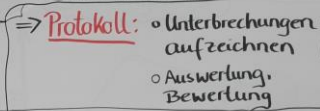 ⇒ Protokoll: ○ Unterbrechungen
aufzeichnen
○ Auswertung,
Bewertung